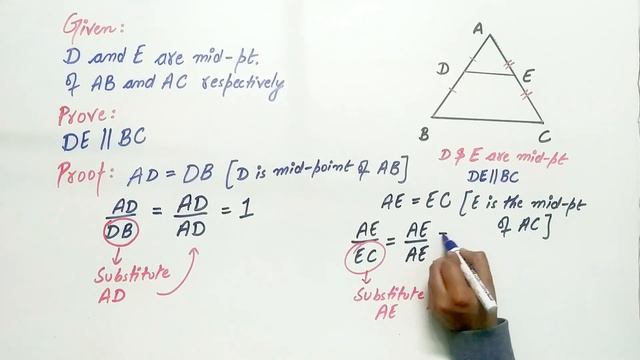 Given:
D and E are mid-pt.
of AB and AC respectively
Prove:
DE || BC
Proof: AD = DB [D is mid-point of AB]
AD/DB = AD/AD = 1
Substitute
AD
A
D
E
B
C
D & E are mid-pt
DE||BC
AE = EC [E is the mid-pt
of AC]
AE/EC = AE/AE -
Substitute
AE